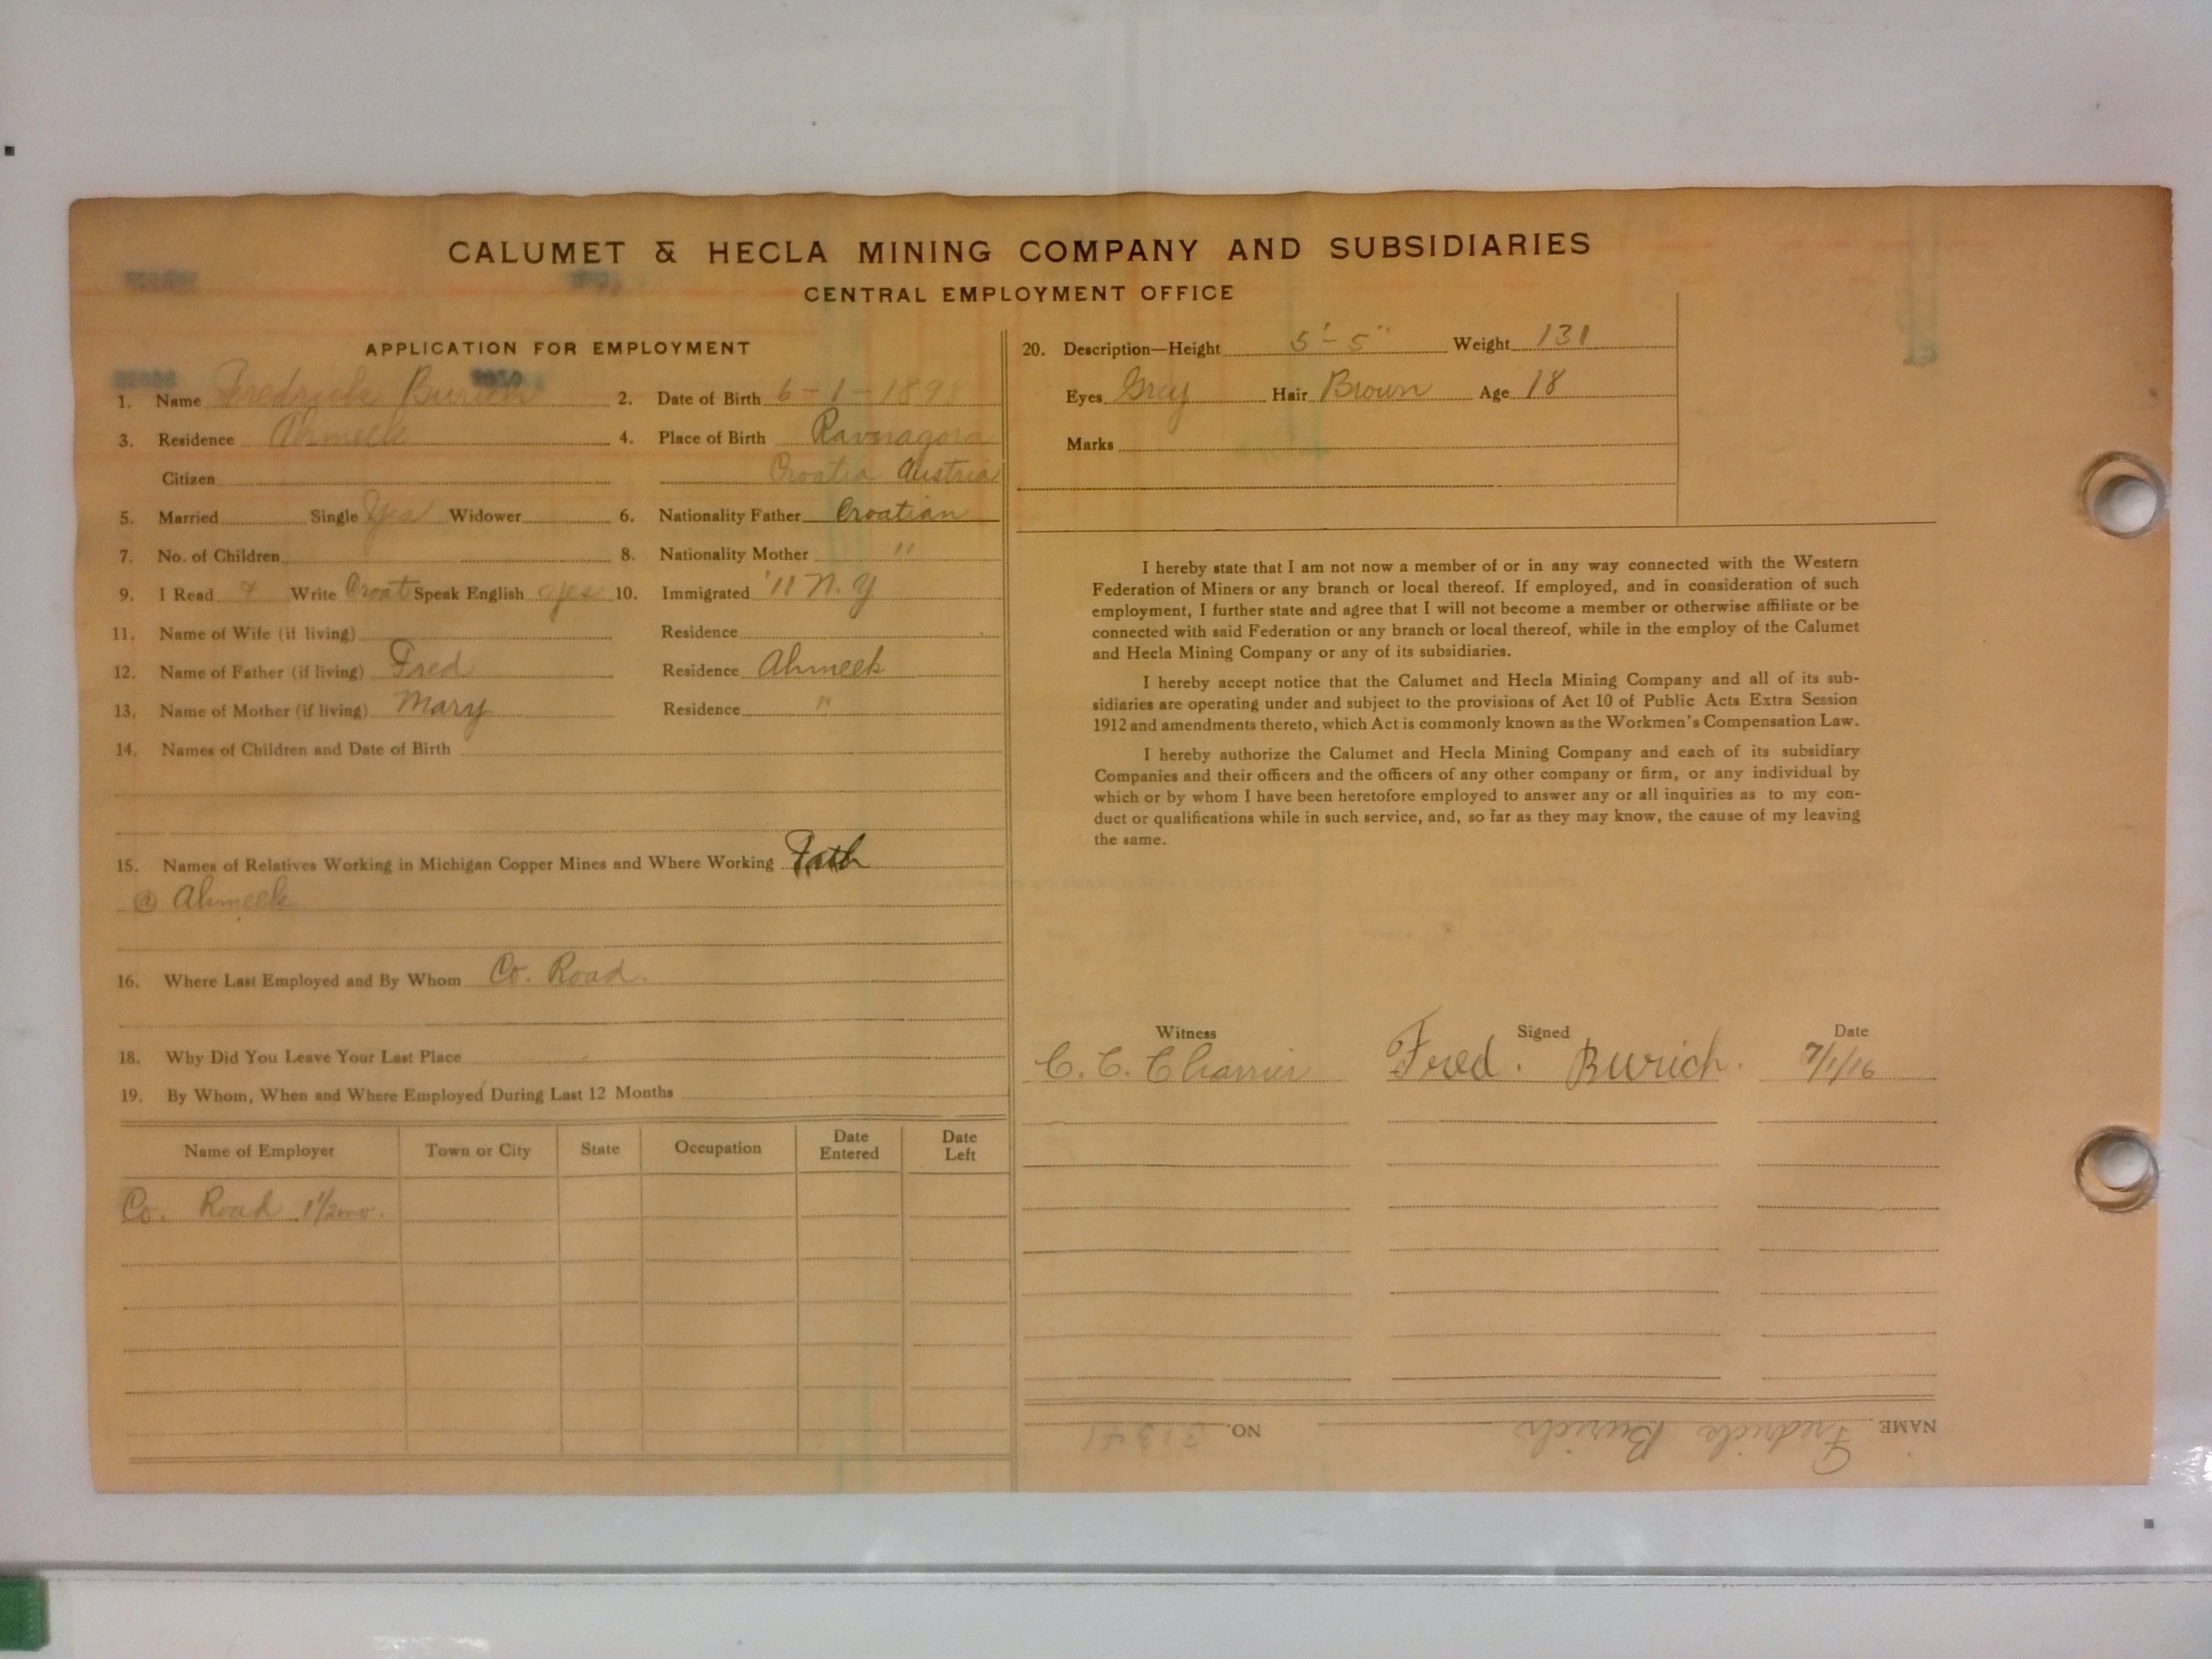 CALUMET & HECLA MINING COMPANY AND SUBSIDIARIES
CENTRAL EMPLOYMENT OFFICE
APPLICATION FOR EMPLOYMENT
1. Name Fredrick Burich 2. Date of Birth 6-1-1898
3. Residence Ahmeek 4. Place of Birth Ravnagora
Citizen Croatia Austria
5. Married Single Yes Widower 6. Nationality Father Croatian
7. No. of Children 8. Nationality Mother "
9. I Read & Write Croat Speak English yes 10. Immigrated '11 N.Y
11. Name of Wife (if living) Residence
12. Name of Father (if living) Fred Residence Ahmeek
13. Name of Mother (if living) Mary Residence "
14. Names of Children and Date of Birth
15. Names of Relatives Working in Michigan Copper Mines and Where Working Fath
@ Ahmeek
16. Where Last Employed and By Whom Co. Road.
18. Why Did You Leave Your Last Place
19. By Whom, When and Where Employed During Last 12 Months
Name of Employer Town or City State Occupation Date Entered Date Left
Co. Road 1 1/2 mo.
20. Description—Height 5'-5" Weight 131
Eyes Grey Hair Brown Age 18
Marks
I hereby state that I am not now a member of or in any way connected with the Western
Federation of Miners or any branch or local thereof. If employed, and in consideration of such
employment, I further state and agree that I will not become a member or otherwise affiliate or be
connected with said Federation or any branch or local thereof, while in the employ of the Calumet
and Hecla Mining Company or any of its subsidiaries.
I hereby accept notice that the Calumet and Hecla Mining Company and all of its sub-
sidiaries are operating under and subject to the provisions of Act 10 of Public Acts Extra Session
1912 and amendments thereto, which Act is commonly known as the Workmen's Compensation Law.
I hereby authorize the Calumet and Hecla Mining Company and each of its subsidiary
Companies and their officers and the officers of any other company or firm, or any individual by
which or by whom I have been heretofore employed to answer any or all inquiries as to my con-
duct or qualifications while in such service, and, so far as they may know, the cause of my leaving
the same.
Witness Signed Date
C. C. Fred. Burich. 7/1/16
NAME Fredrick Burich NO. 31341